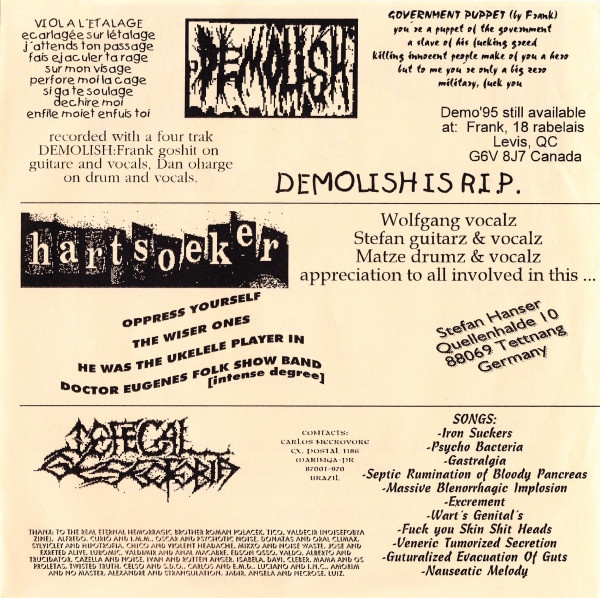 VIOL A L'ETALAGE
ecarlagée sur létalage
j'attends ton passage
fais ejaculer ta rage
sur mon visage
perfore moi la cage
si ga te soulage
dechire moi
enfile moi et enfuis toi
recorded with a four trak
DEMOLISH:Frank goshit on
guitare and vocals, Dan oharge
on drum and vocals.
DEMOLISH
GOVERNMENT PUPPET (by Frank)
you re a puppet of the government
a slave of his fucking greed
killing innocent people make of you a hero
but to me you re only a big zero
military, fuck you
Demo'95 still available
at: Frank, 18 rabelais
Levis, QC
G6V 8J7 Canada
DEMOLISH IS R.I.P.
hartsoeker
OPPRESS YOURSELF
THE WISER ONES
HE WAS THE UKELELE PLAYER IN
DOCTOR EUGENES FOLK SHOW BAND
[intense degree]
Wolfgang vocalz
Stefan guitarz & vocalz
Matze drumz & vocalz
appreciation to all involved in this ...
Stefan Hanser
Quellenhalde 10
88069 Tettnang
Germany
CONTACTS:
CARLOS NECROVORE
CX. POSTAL 1186
MARINGA-PR
87001-970
BRAZIL
THANX: TO THE REAL ETERNAL HEMORRAGIC BROTHER ROMAN POLACEK, TICO, VALDECIR (NOISEFOBYA
ZINE), ALFREDO, CURIO AND I.M.M., OSCAR AND PSYCHOTIC NOISE, DONATAS AND ORAL CLIMAX,
SYLVYCLEY AND HIPOTROFIA, CHICO AND VIOLENT HEADACHE, MIXKO AND NOISE WASTE, JOSE AND
EXRETED ALIVE, LUBOMIC, VALDIMIR AND ANAL MACABRE, EDSON OSSO, VALDO, ALBERTO AND
TRUCIDATOR, CAZELLA AND NOISE, IVAN AND ROTTEN ANGER, ISABELA, DAVI, CLEBER, MAMA AND OS
PROLETAS, TWISTED TRUTH, CELSO AND S.D.O., CARLOS AND E.M.D., LUCIANO AND I.N.C., AMORIM
AND NO MASTER, ALEXANDRE AND STRANGULATION, JADIR, ANGELA AND NECROSE, LUIZ.
SONGS:
-Iron Suckers
-Psycho Bacteria
-Gastralgia
-Septic Rumination of Bloody Pancreas
-Massive Blenorrhagic Implosion
-Excrement
-Wart's Genital's
-Fuck you Skin Shit Heads
-Veneric Tumorized Secretion
-Guturalized Evacuation Of Guts
-Nauseatic Melody